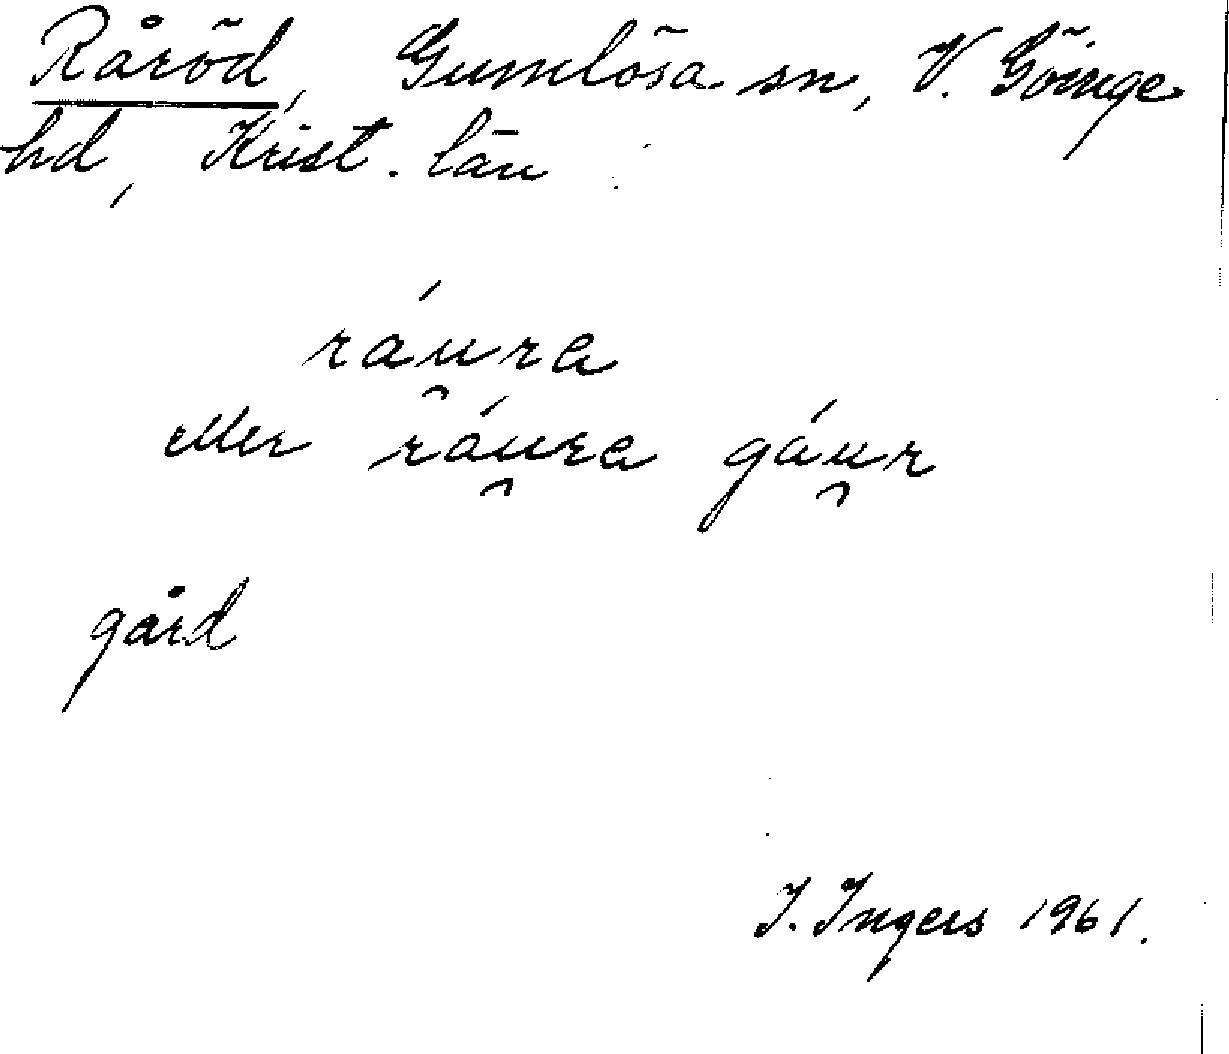 Råröd, Gumlösa sn, V. Göinge
hd, Krist. län
ráu̯ra
eller ráu̯ra gáu̯r
gård
I. Ingers 1961.